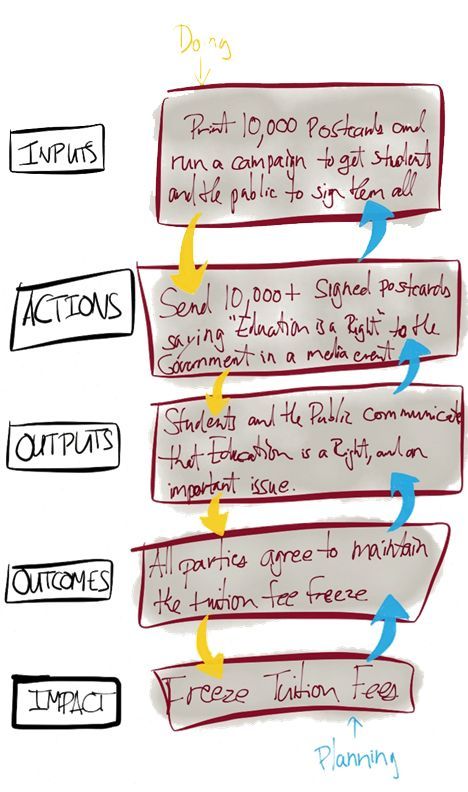 Doing
INPUTS
Print 10,000 Postcards and
run a campaign to get students
and the public to sign them all
ACTIONS
Send 10,000+ Signed Postcards
saying "Education is a Right" to the
Government in a media event
OUTPUTS
Students and the Public communicate
that Education is a Right, and an
important issue.
OUTCOMES
All parties agree to maintain
the tuition fee freeze
IMPACT
Freeze Tuition Fees
Planning